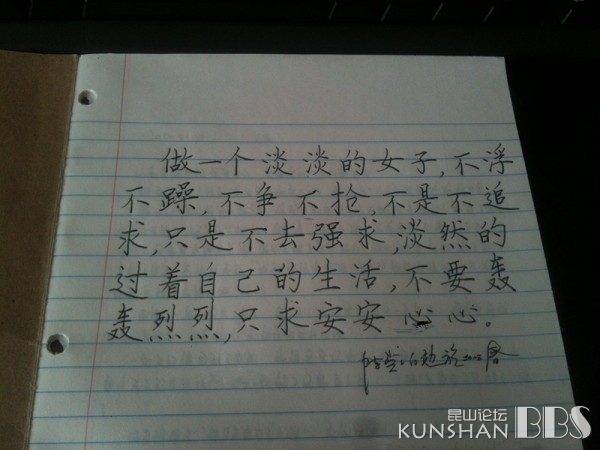 做一个淡淡的女子,不浮
不躁,不争不抢,不是不追
求,只是不去强求,淡然的
过着自己的生活,不要轰
轰烈烈,只求安安心心。
昆山论坛
KUNSHAN BBS